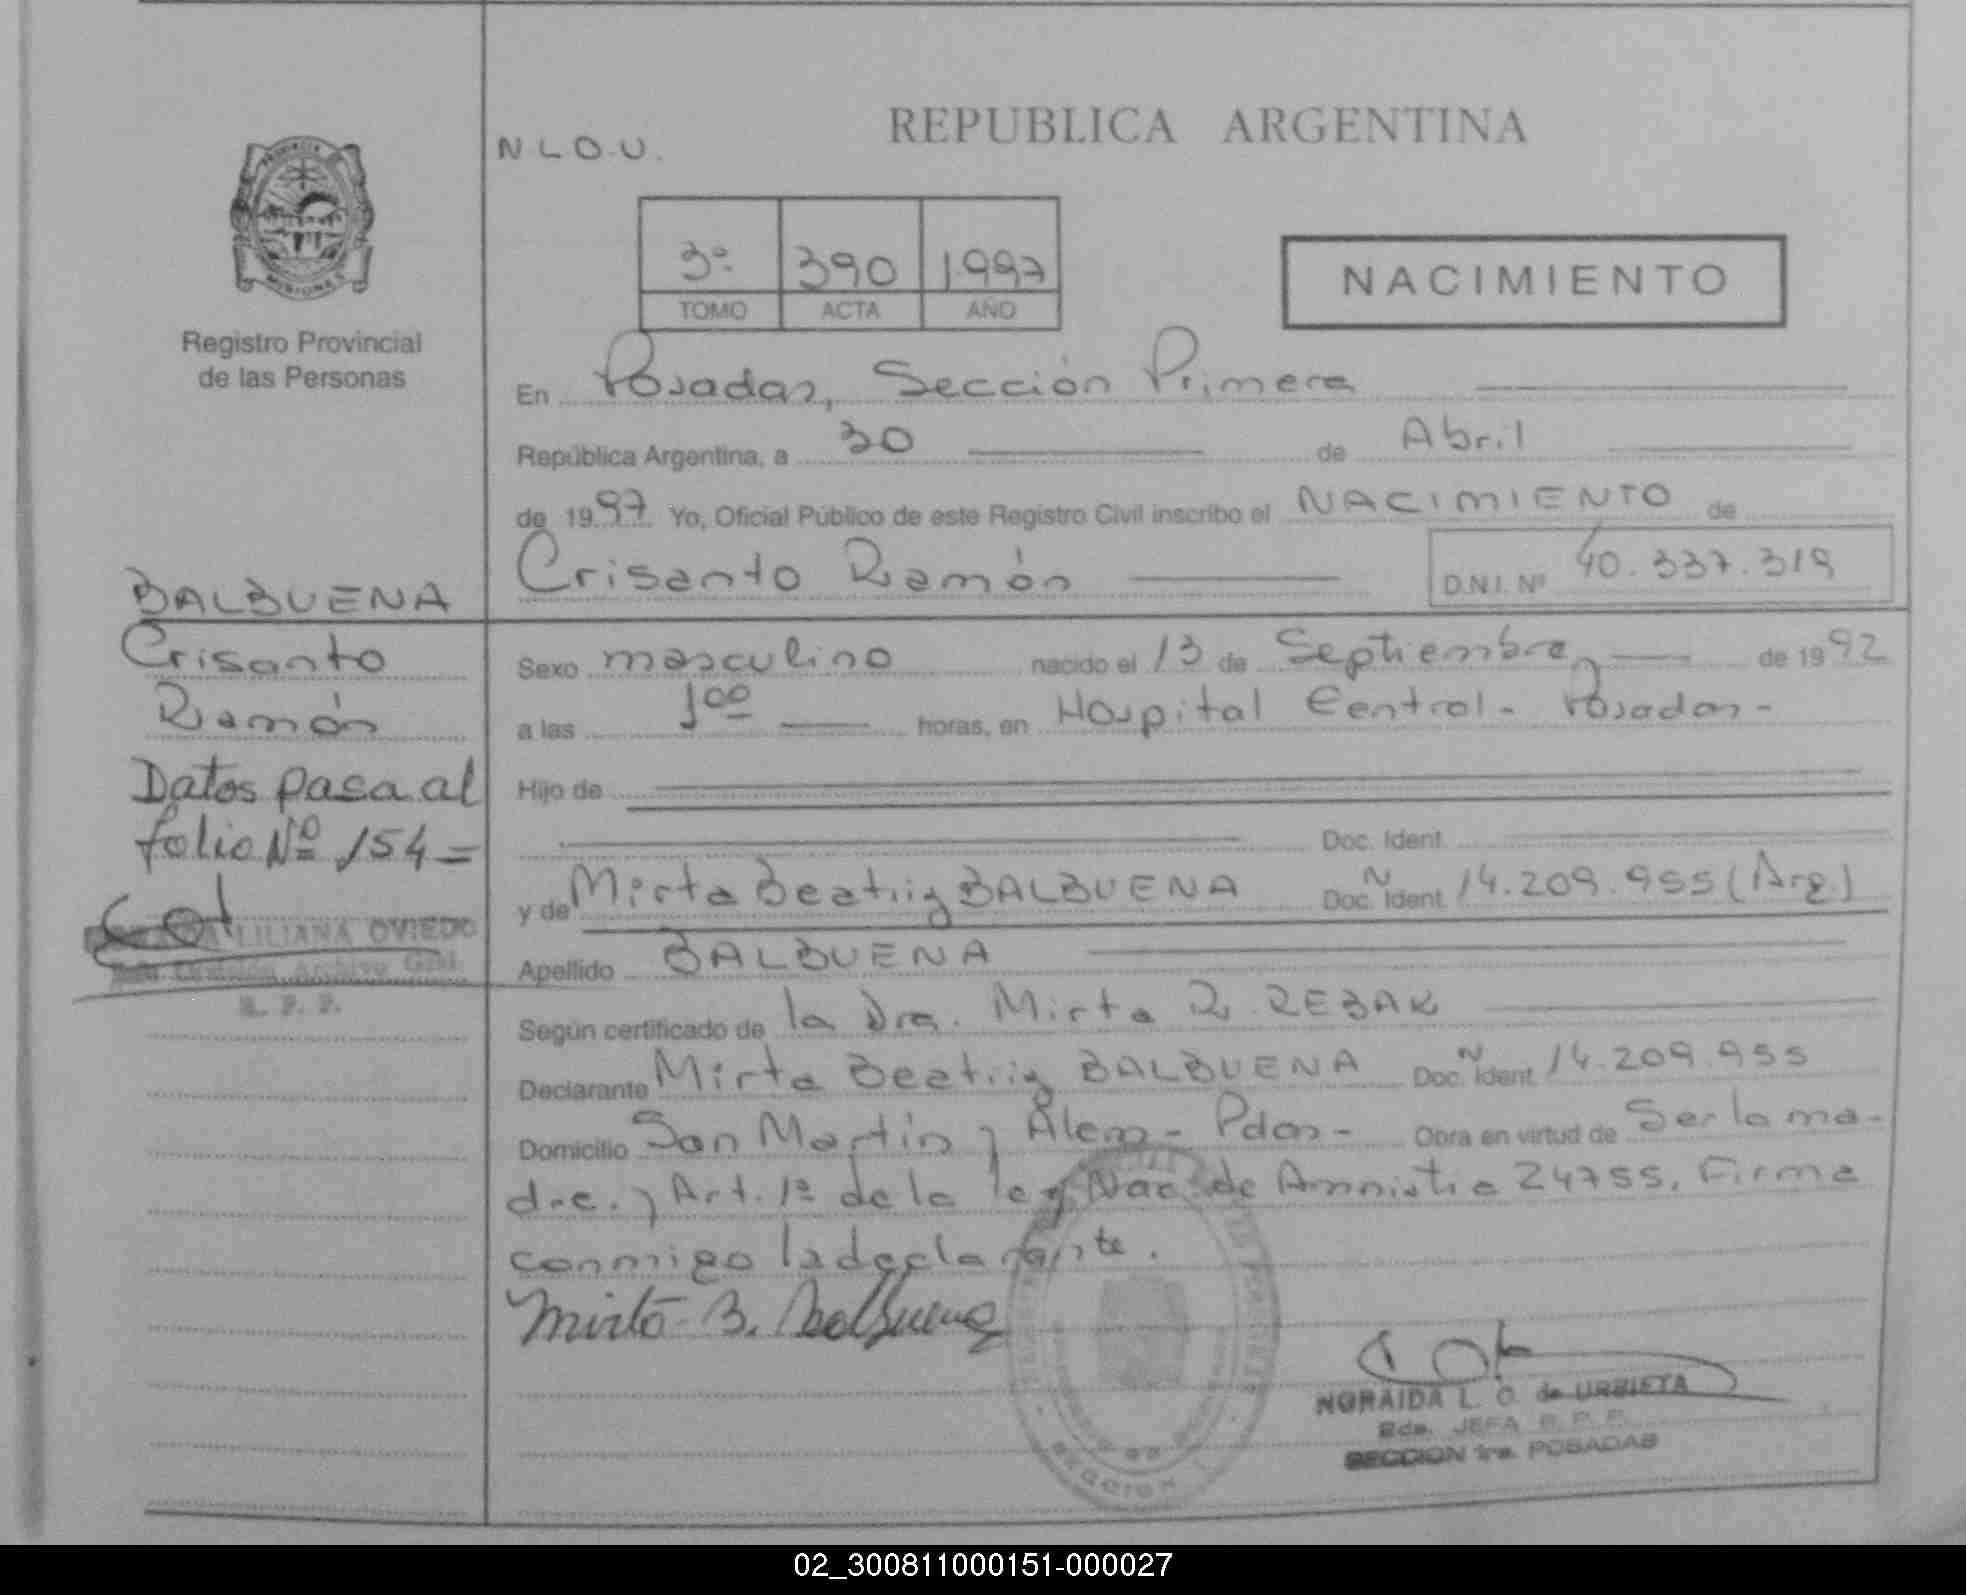 REPUBLICA ARGENTINA
N L O. U.
PROVINCIA
MISIONES
Registro Provincial
de las Personas
3º 390 1997
TOMO ACTA AÑO
NACIMIENTO
En Posadas, Sección Primera
República Argentina, a 30 de Abril
de 1997 Yo, Oficial Público de este Registro Civil inscribo el NACIMIENTO de
Crisanto Ramón D.N.I. Nº 40.337.319
BALBUENA
Crisanto
Ramón
Datos pasa al
folio Nº 154=
LILIANA OVIEDO
Archivo Gral.
R. P. P.
Sexo masculino nacido el 13 de Septiembre de 1992
a las 1ºº horas, en Hospital Central - Posadas -
Hijo de
Doc. Ident.
y de Mirta Beatriz BALBUENA Doc. N Ident. 14.209.955 (Arg.)
Apellido BALBUENA
Según certificado de la Dra. Mirta R. REBAK
Declarante Mirta Beatriz BALBUENA Doc. N Ident. 14.209.955
Domicilio San Martín y Alem - Pdas - Obra en virtud de Ser la ma-
dre. y Art. 1º de la ley Nac. de Amnistia 24755. Firma
conmigo la declarante.
Mirta B. Balbuena
NORAIDA L. O. de URBIETA
Bda. JEFA R. P. P.
SECCION 1ra. POSADAS
SECCION 1
02_300811000151-000027